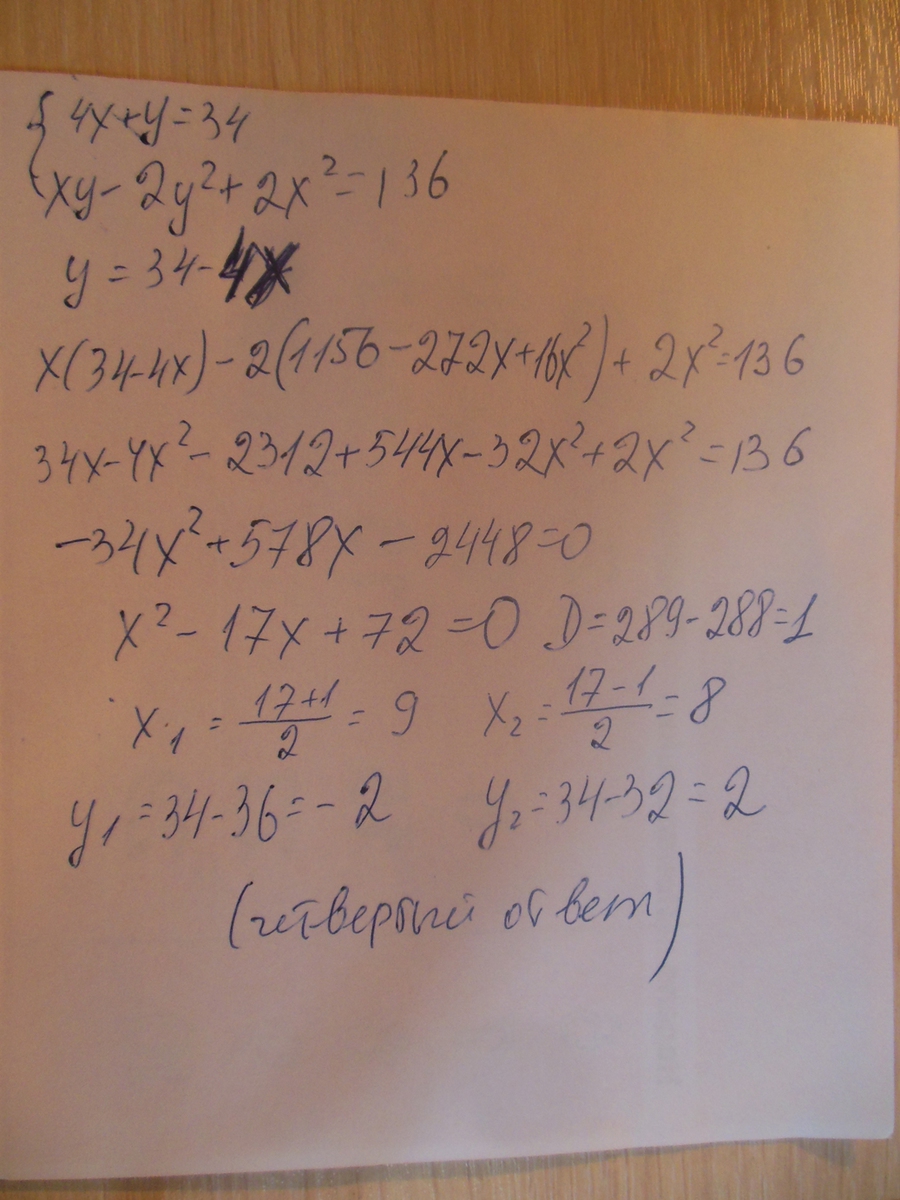 { 4x+y=34
xy-2y²+2x²=136
y=34-4x
x(34-4x)-2(1156-272x+16x²)+2x²=136
34x-4x²-2312+544x-32x²+2x²=136
-34x²+578x-2448=0
x²-17x+72=0 D=289-288=1
x₁=(17+1)/2=9 x₂=(17-1)/2=8
y₁=34-36=-2 y₂=34-32=2
(четвертый ответ)